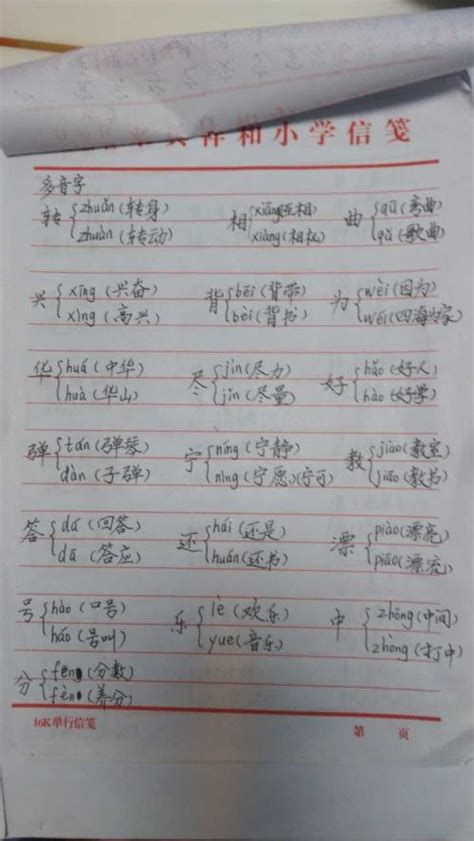 和小学信笺
多音字
转 zhuǎn (转身) 相 xiāng (互相) 曲 qū (弯曲)
zhuàn (转动) xiàng (相机) qǔ (歌曲)
兴 xīng (兴奋) 背 bēi (背带) 为 wèi (因为)
xìng (高兴) bèi (背书) wéi (四海为家)
华 huá (中华) 尽 jìn (尽力) 好 hǎo (好人)
huà (华山) jǐn (尽量) hào (好学)
弹 tán (弹琴) 宁 níng (宁静) 教 jiào (教室)
dàn (子弹) nìng (宁愿) (宁可) jiāo (教书)
答 dá (回答) 还 hái (还是) 漂 piào (漂亮)
dā (答应) huán (还书) piāo (漂流)
号 hào (口号) 乐 lè (欢乐) 中 zhōng (中间)
háo (号叫) yuè (音乐) zhòng (打中)
分 fēn (分数)
fèn (养分)
16K单行信笺 第 页